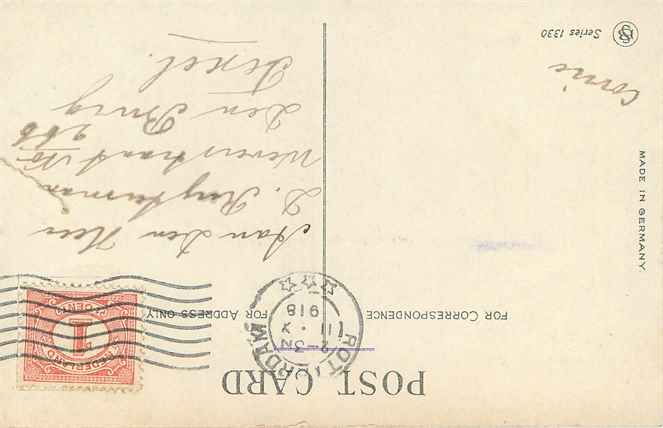 POST CARD
FOR CORRESPONDENCE
FOR ADDRESS ONLY
NEDERLAND
1
CENT
2-3N
X
918
Aan Den Heer
Weverstraat No
266
Den Burg
Texel.
Corrie
MADE IN GERMANY.
Series 1330